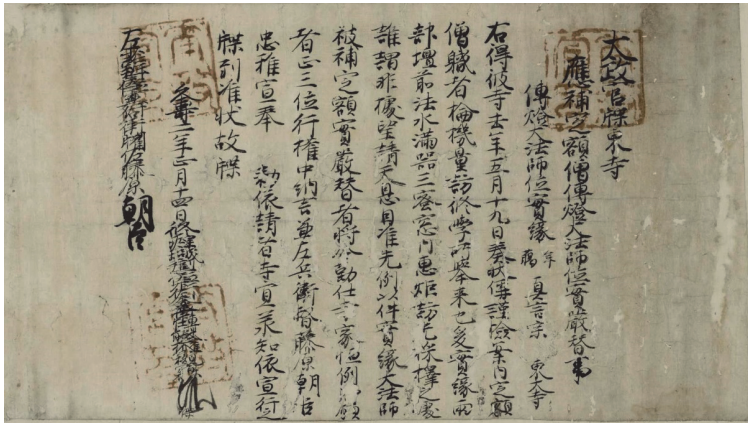 太政官牒東寺
應補定額僧傳燈大法師位實嚴替事
傳燈大法師位實縁 年 﨟 真言宗 東大寺
右得彼寺去年五月十九日奏狀偁謹檢案内定額
僧職者掄機量訪修學所舉来也爰實縁兩
部壇前法水滿器三密窓門惠炬
誰謂非據望請天恩因准先例以件實縁大法師
被補定額實嚴替者將令勤仕 家恒例 願
者正三位行權中納言兼左兵衛督藤原朝臣
忠雅宣奉 勅依請者寺宜承知依宣行之
牒到准状故牒
久壽二年三月十四日修理
左 藤原朝臣